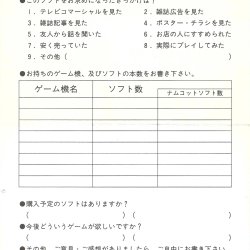 ●このソフトをお求めになったきっかけは？
1．テレビコマーシャルを見た　2．雑誌広告を見た
3．雑誌記事を見た　4．ポスター・チラシを見た
5．友人から話を聞いた　6．お店の人にすすめられた
7．安く売っていた　8．実際にプレイしてみた
9．その他（
●お持ちのゲーム機、及びソフトの本数をお書き下さい。
ゲーム機名　ソフト数　ナムコットソフト数
●購入予定のソフトはありますか？
（　　）（　　）
●今後どういうゲームが欲しいですか？
（　　）
●その他、ご意見・ご感想がありましたら、ご自由にお書き下さ